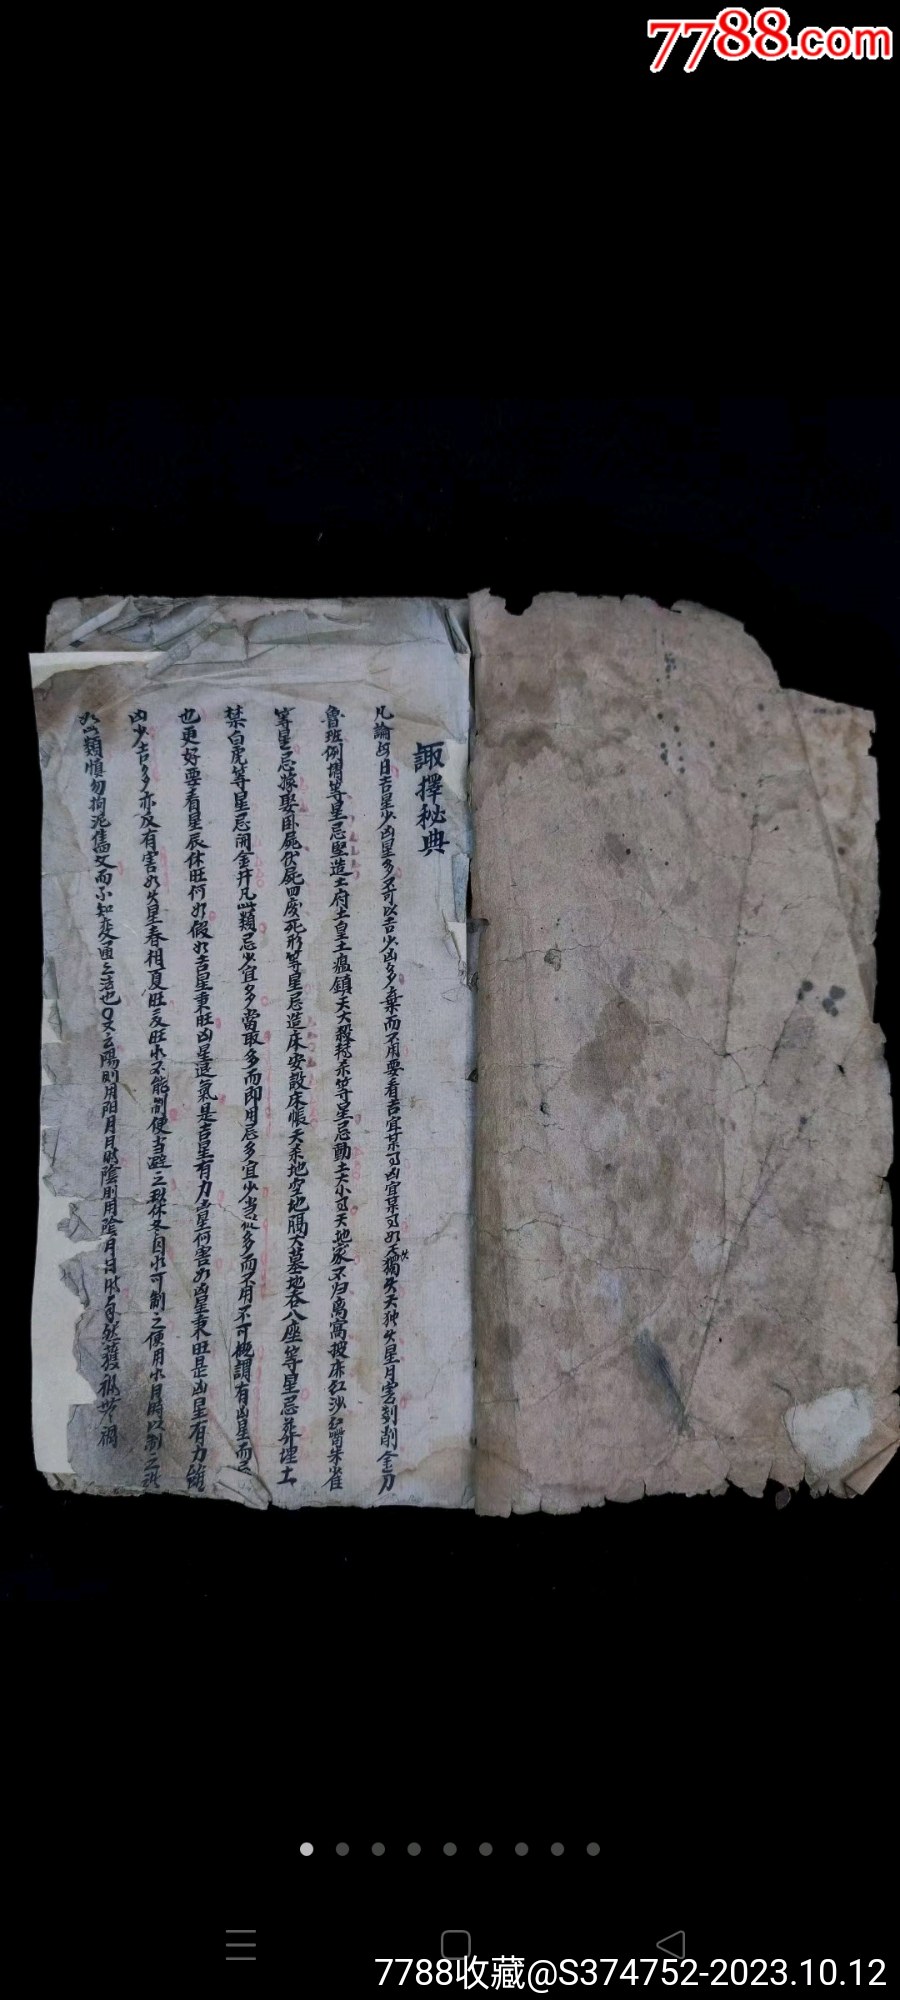 7788.com
諏擇秘典
凡論每日吉星少凶星多不可以吉少凶多棄而不用要看吉宜某可凶宜某可如天獨火天狗火星月害刻削金刀
魯班例墖等星忌竪造土府土皇土瘟鎮天大殺耗杀等星忌動土大小可天地家不归离窩披床红沙红嘴朱雀
等星忌嫁娶卧屍伏屍四废死形等星忌造床安設床帳天杀地空地隔大墓地吞八座等星忌葬埋土
禁白虎等星忌開金井凡此類忌少宜多當取多而即用忌多宜少当從多而不用不可概謂有凶星而已
也更好要看星辰休旺何如假如吉星秉旺凶星退氣是吉星有力凶星何害如凶星秉旺是凶星有力雖
凶少吉多亦反有害如火星春相夏旺反旺水不能制便当避之秋休冬囚水可制之便用水月時以制之
如此類慎勿拘泥舊文而不知変通之法也又云陽則用阳月日時陰則用陰月日時自然獲福無禍
7788收藏@S374752-2023.10.12